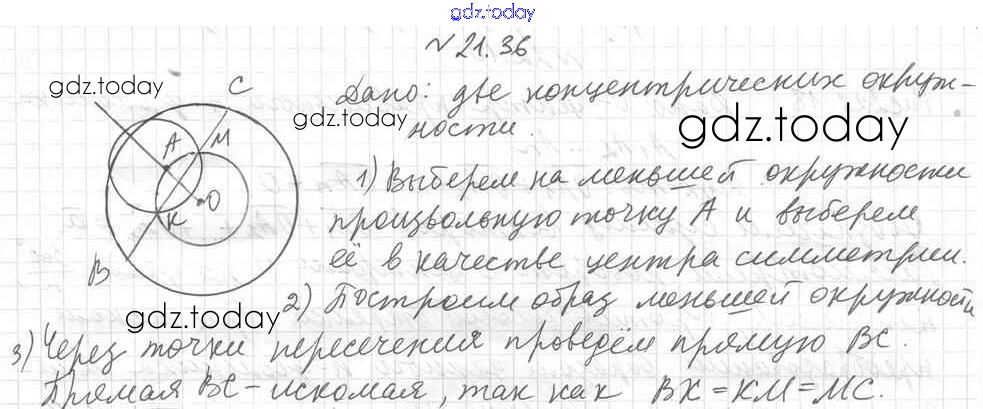 gdz.today
№ 21.36
gdz.today
Дано: две концентрических окруж-
gdz.today
ности.
gdz.today
C
A
M
O
K
B
1) Выберем на меньшей окружности
произвольную точку A и выберем
её в качестве центра симметрии.
2) Построим образ меньшей окружности
gdz.today
3) Через точки пересечения проведём прямую BC.
Прямая BC - искомая, так как BK = KM = MC.